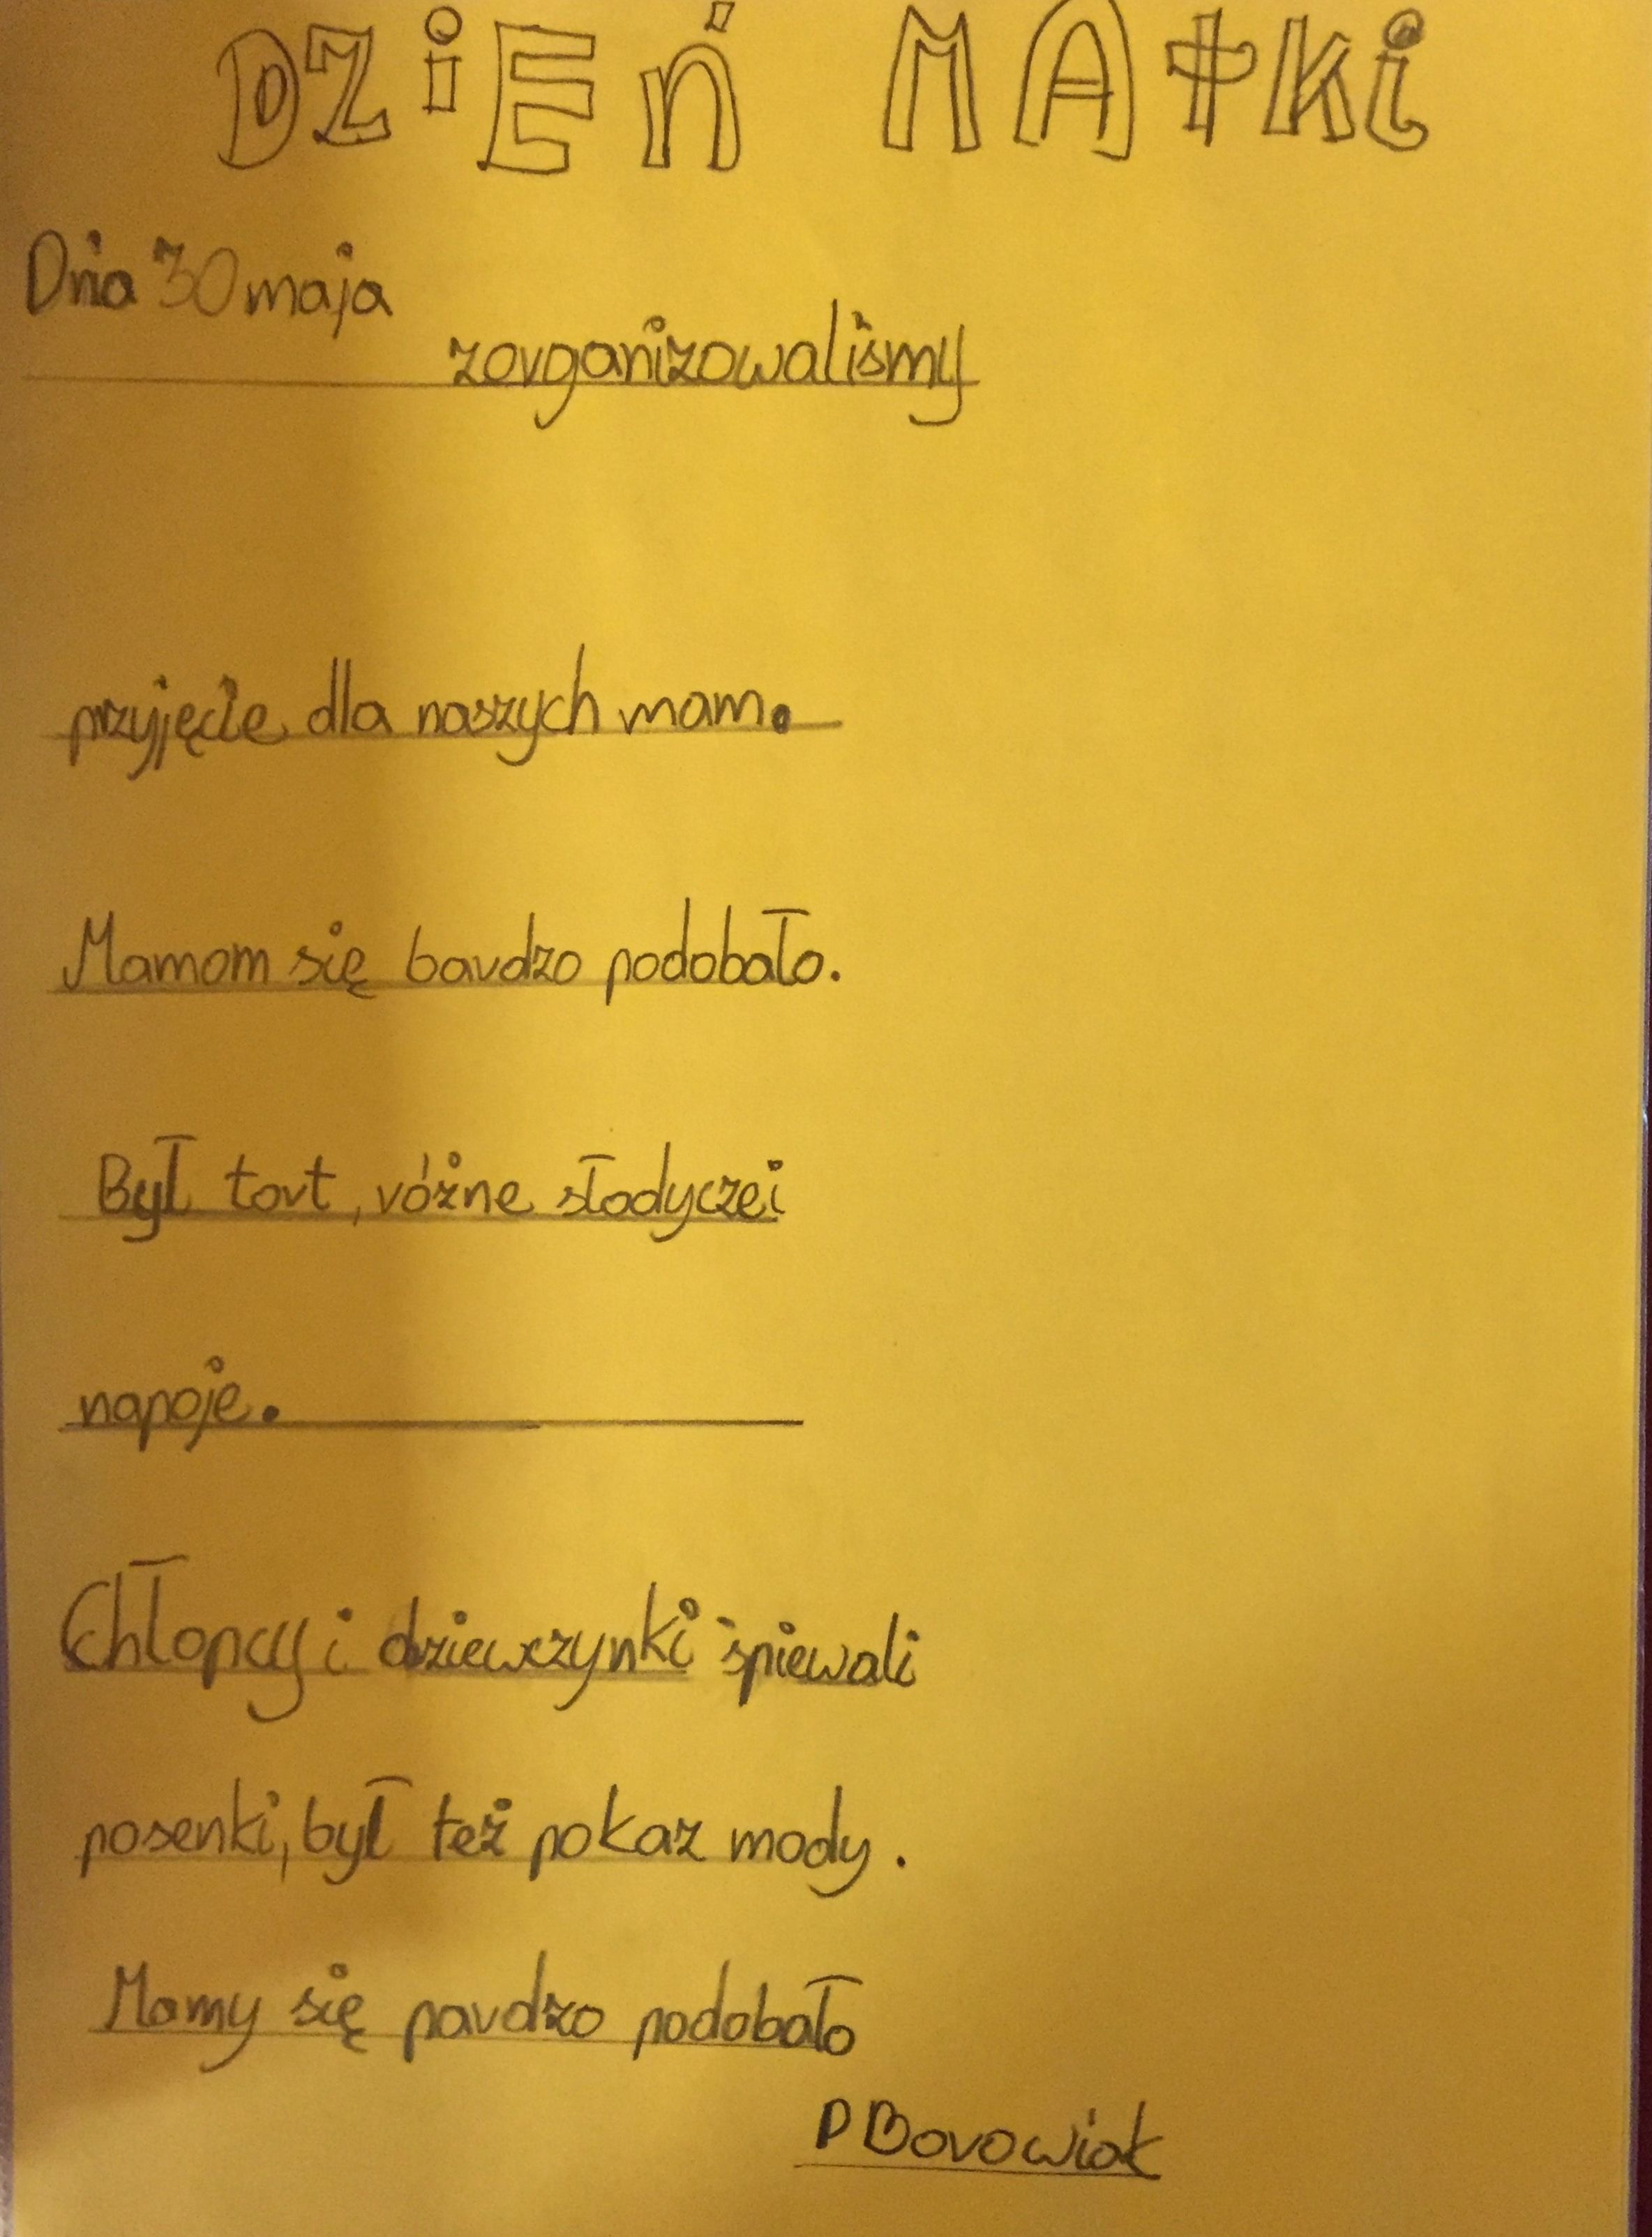 DZiEń MAtKi
Dnia 30 maja
zorganizowaliśmy
przyjęcie dla naszych mam.
Mamom się bardzo podobało.
Był tort, różne słodycze i
napoje.
Chłopcy i dziewczynki śpiewali
posenki, był też pokaz mody.
Mamy się pardzo podobało
P Borowiak